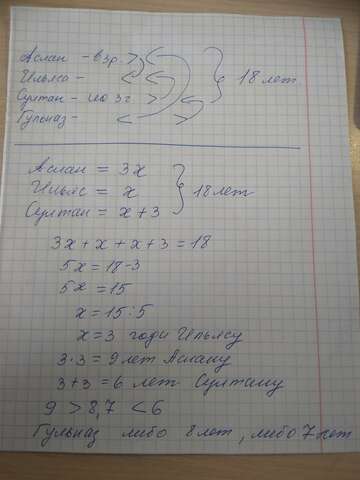 Аслан - взр. >
Ильяс - <
Султан - на 3 г. > 18 лет.
Гульназ - < >
Аслан = 3x
Ильяс = x
Султан = x + 3
18 лет
3x + x + x + 3 = 18
5x = 18 - 3
5x = 15
x = 15 : 5
x = 3 годи Ильясу
3 · 3 = 9 лет Аслану
3 + 3 = 6 лет Султану
9 > 8,7 < 6
Гульназ либо 8 лет, либо 7 лет